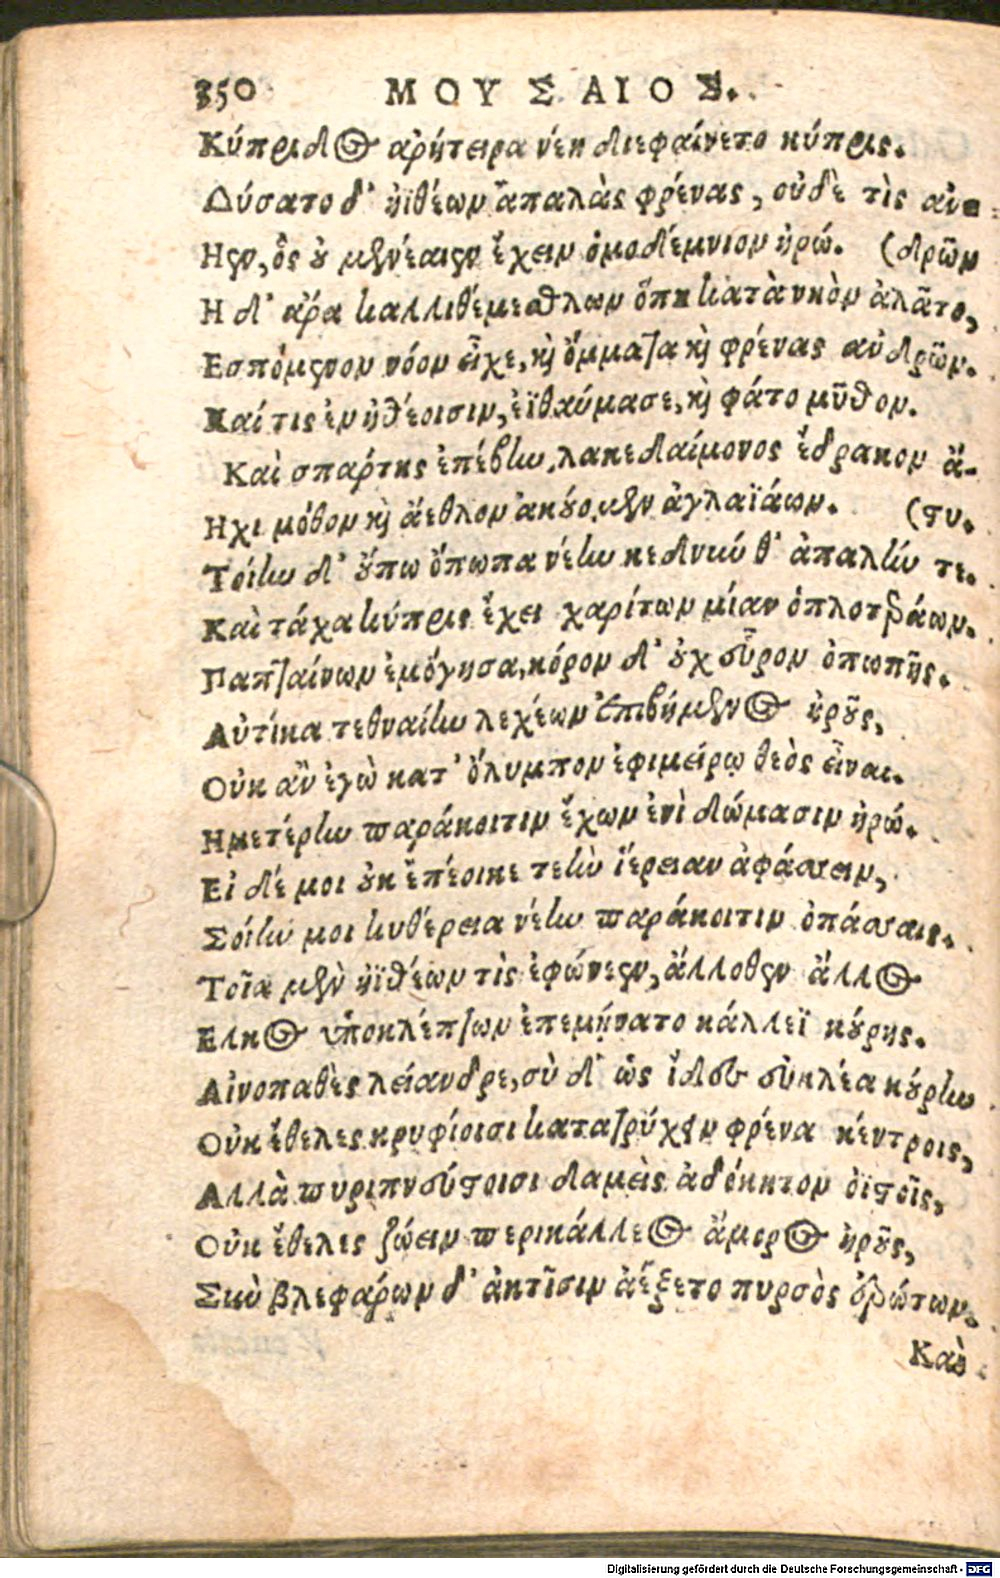 350 ΜΟΥΣΑΙΟΣ.
Κύπριδος ἀρήτειρα νέη διεφαίνετο κύπρις.
Δύσατο δ' ἠϊθέων ἁπαλὰς φρένας, οὐδὲ τὶς ἀν-
Ηεν, ὃς οὐ μενέαινεν ἔχειν ὁμοδέμνιον ἡρώ. (δρῶν
Η δ' ἄρα καλλιθέμεθλον ὅπη κατὰ νηὸν ἀλᾶτο,
Εσπόμενον νόον εἶχε, καὶ ὄμματα καὶ φρένας ἀνδρῶν.
Καί τις ἐν ἠϊθέοισιν, ἐϊθαύμασε, καὶ φάτο μῦθον.
Καὶ σπάρτης ἐπέβην, λακεδαίμονος ἔδρακον ἄ-
Ηχι μόθον καὶ ἄεθλον ἀκούομεν ἀγλαϊάων. (στυ.
Τοίην δ' οὔπω ὄπωπα νέην κεδνήν θ' ἁπαλήν τε.
Καὶ τάχα κύπρις ἔχει χαρίτων μίαν ὁπλοτεράων.
Παπταίνων ἐμόγησα, κόρον δ' οὐχ εὗρον ὀπωπῆς.
Αὐτίκα τεθναίην λεχέων ἐπιβήμενος ἡροῦς,
Οὐκ ἂν ἐγὼ κατ' ὄλυμπον ἐφιμείρω θεὸς εἶναι.
Ημετέρην παράκοιτιν ἔχων ἐνὶ δώμασιν ἡρώ.
Εἰ δέ μοι οὐκ ἐπέοικε τεὴν ἱέρειαν ἀφάσσειν,
Τοίην μοι κυθέρεια νέην παράκοιτιν ὀπάσσαις.
Τοῖα μὲν ἠϊθέων τὶς ἐφώνεεν, ἄλλοθεν ἄλλος
Ελκος ὑποκλέπτων ἐπεμήνατο κάλλεϊ κούρης.
Αἰνοπαθὲς λείανδρε, σὺ δ' ὡς ἴδες εὐκλέα κούρην
Οὐκ ἔθελες κρυφίοισι κατατρύχειν φρένα κέντροις,
Αλλὰ πυριπνεύστοισι δαμεὶς ἀδόκητον ὀϊστοῖς,
Οὐκ ἔθελες ζώειν περικάλλεος ἄμμορος ἡροῦς,
Σὺν βλεφάρων δ' ἀκτῖσιν ἀέξετο πυρσὸς ἐρώτων.
Καὶ
Digitalisierung gefördert durch die Deutsche Forschungsgemeinschaft - DFG